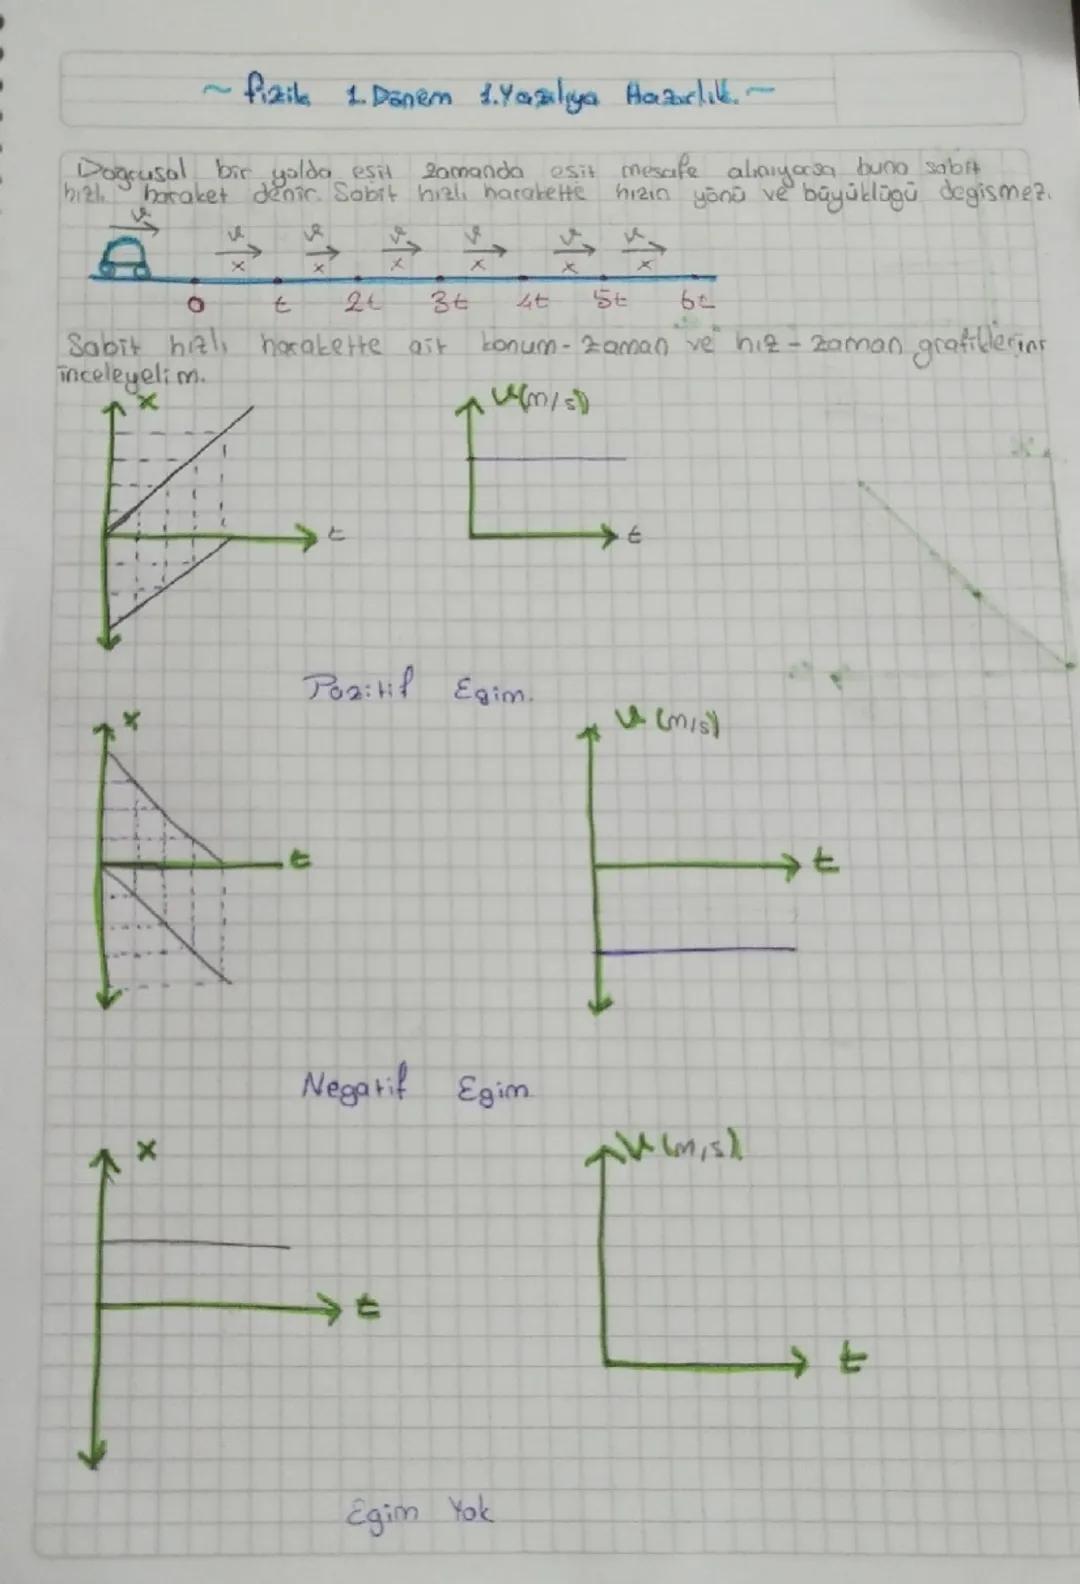 ~ fizik 1. Dönem 1. Yazılıya Hazırlık. ~
Doğrusal bir yolda eşit zamanda eşit mesafe alınıyorsa buna sabit
hızlı haraket denir. Sabit hızlı harakette hızın yönü ve büyüklügü degismez.
v
v v v v v v
x x x x x x
0 t 2t 3t 4t 5t 6t
Sabit hızlı harakette ait konum-zaman ve hız-zaman grafiklerini
inceleyelim.
x V(m/s)
t t
Pozitif Egim.
x V (m/s)
t t
Negatif Egim
x V (m/s)
t t
Egim Yok